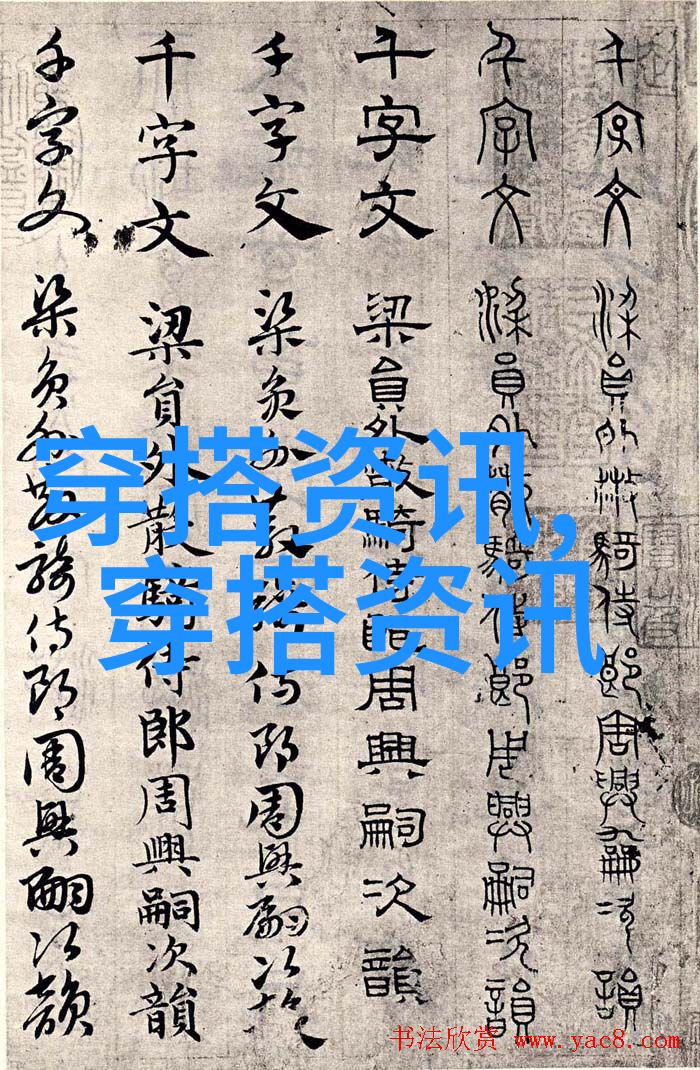 千字文 梁員外散騎侍郎周興嗣次韻
千字文 梁員外散騎侍郎周興嗣次韻
千字文 梁員外散騎侍郎周興嗣次韻
千字文 梁員外散騎侍郎周興嗣次韻
千字文 梁員外散騎侍郎周興嗣次韻
千字文 梁員外散騎侍郎周興嗣次韻
穿搭资讯,
穿搭资讯
书法欣赏 www.yac8.com